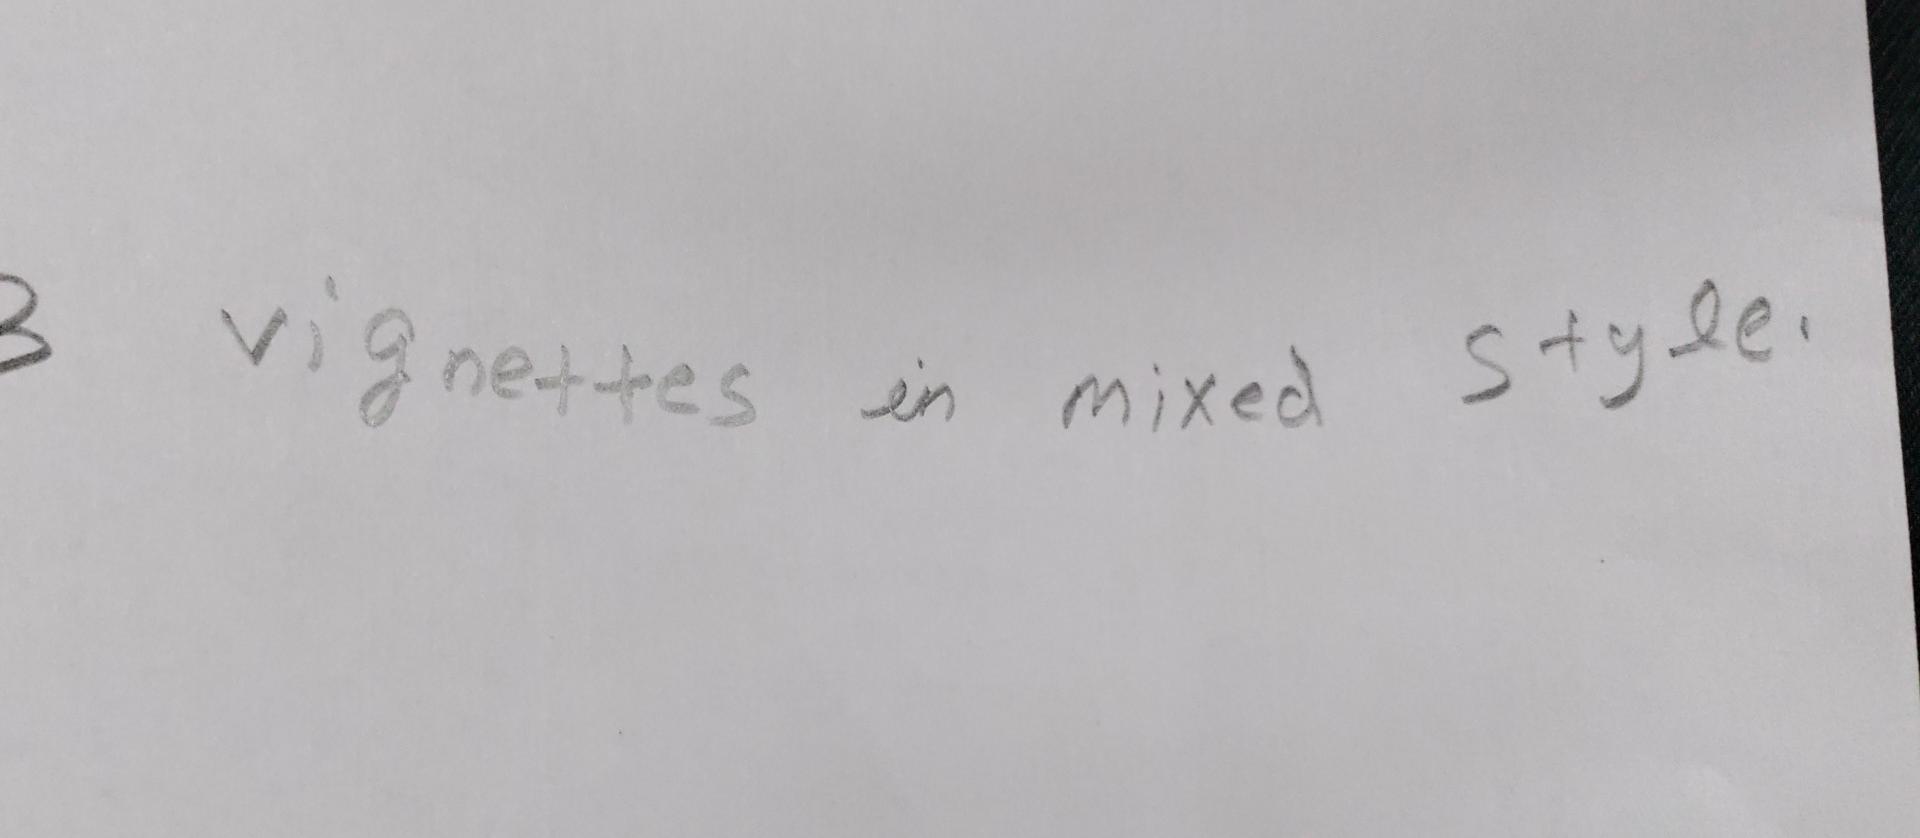 3 vignettes in mixed style.